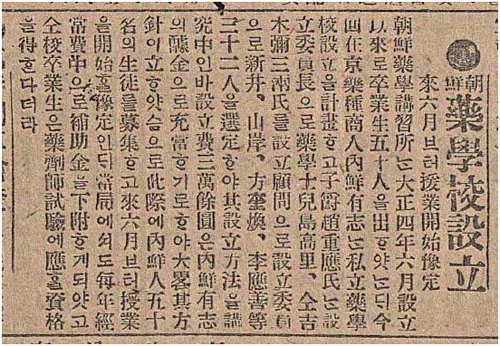 朝鮮藥學校設立
來六月브터授業開始豫定
朝鮮藥學講習所는大正四年六月設立
以來로卒業生五十人을出ᄒᆞ얏는ᄃᆡ今
回在京藥種商人內鮮有志는私立藥學
校設立을計畫ᄒᆞ고子爵趙重應氏는設
立委員長으로藥學士兒島高里、仝吉
木彌三兩氏를設立顧問으로設立委員
으로新井、山岸、方奎煥、李應善等
三十二人을選定ᄒᆞ야其設立方法을講
究中인바設立費三萬餘圓은內鮮有志
의醵金으로充當ᄒᆞ기로ᄒᆞ야大畧其方
針이立ᄒᆞ얏슴으로此際에內鮮人五十
名의生徒를募集ᄒᆞ고來六月브터授業
을開始ᄒᆞᆯ豫定인ᄃᆡ當局에셔도每年經
常費中으로補助金을下附ᄒᆞ게되야고
仝校卒業生은藥劑師試驗에應ᄒᆞᆯ資格
을得ᄒᆞ다더라